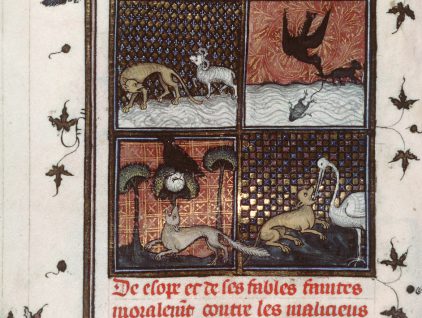 De esope et de ses fables faintes
moralemēt contre les malicieus